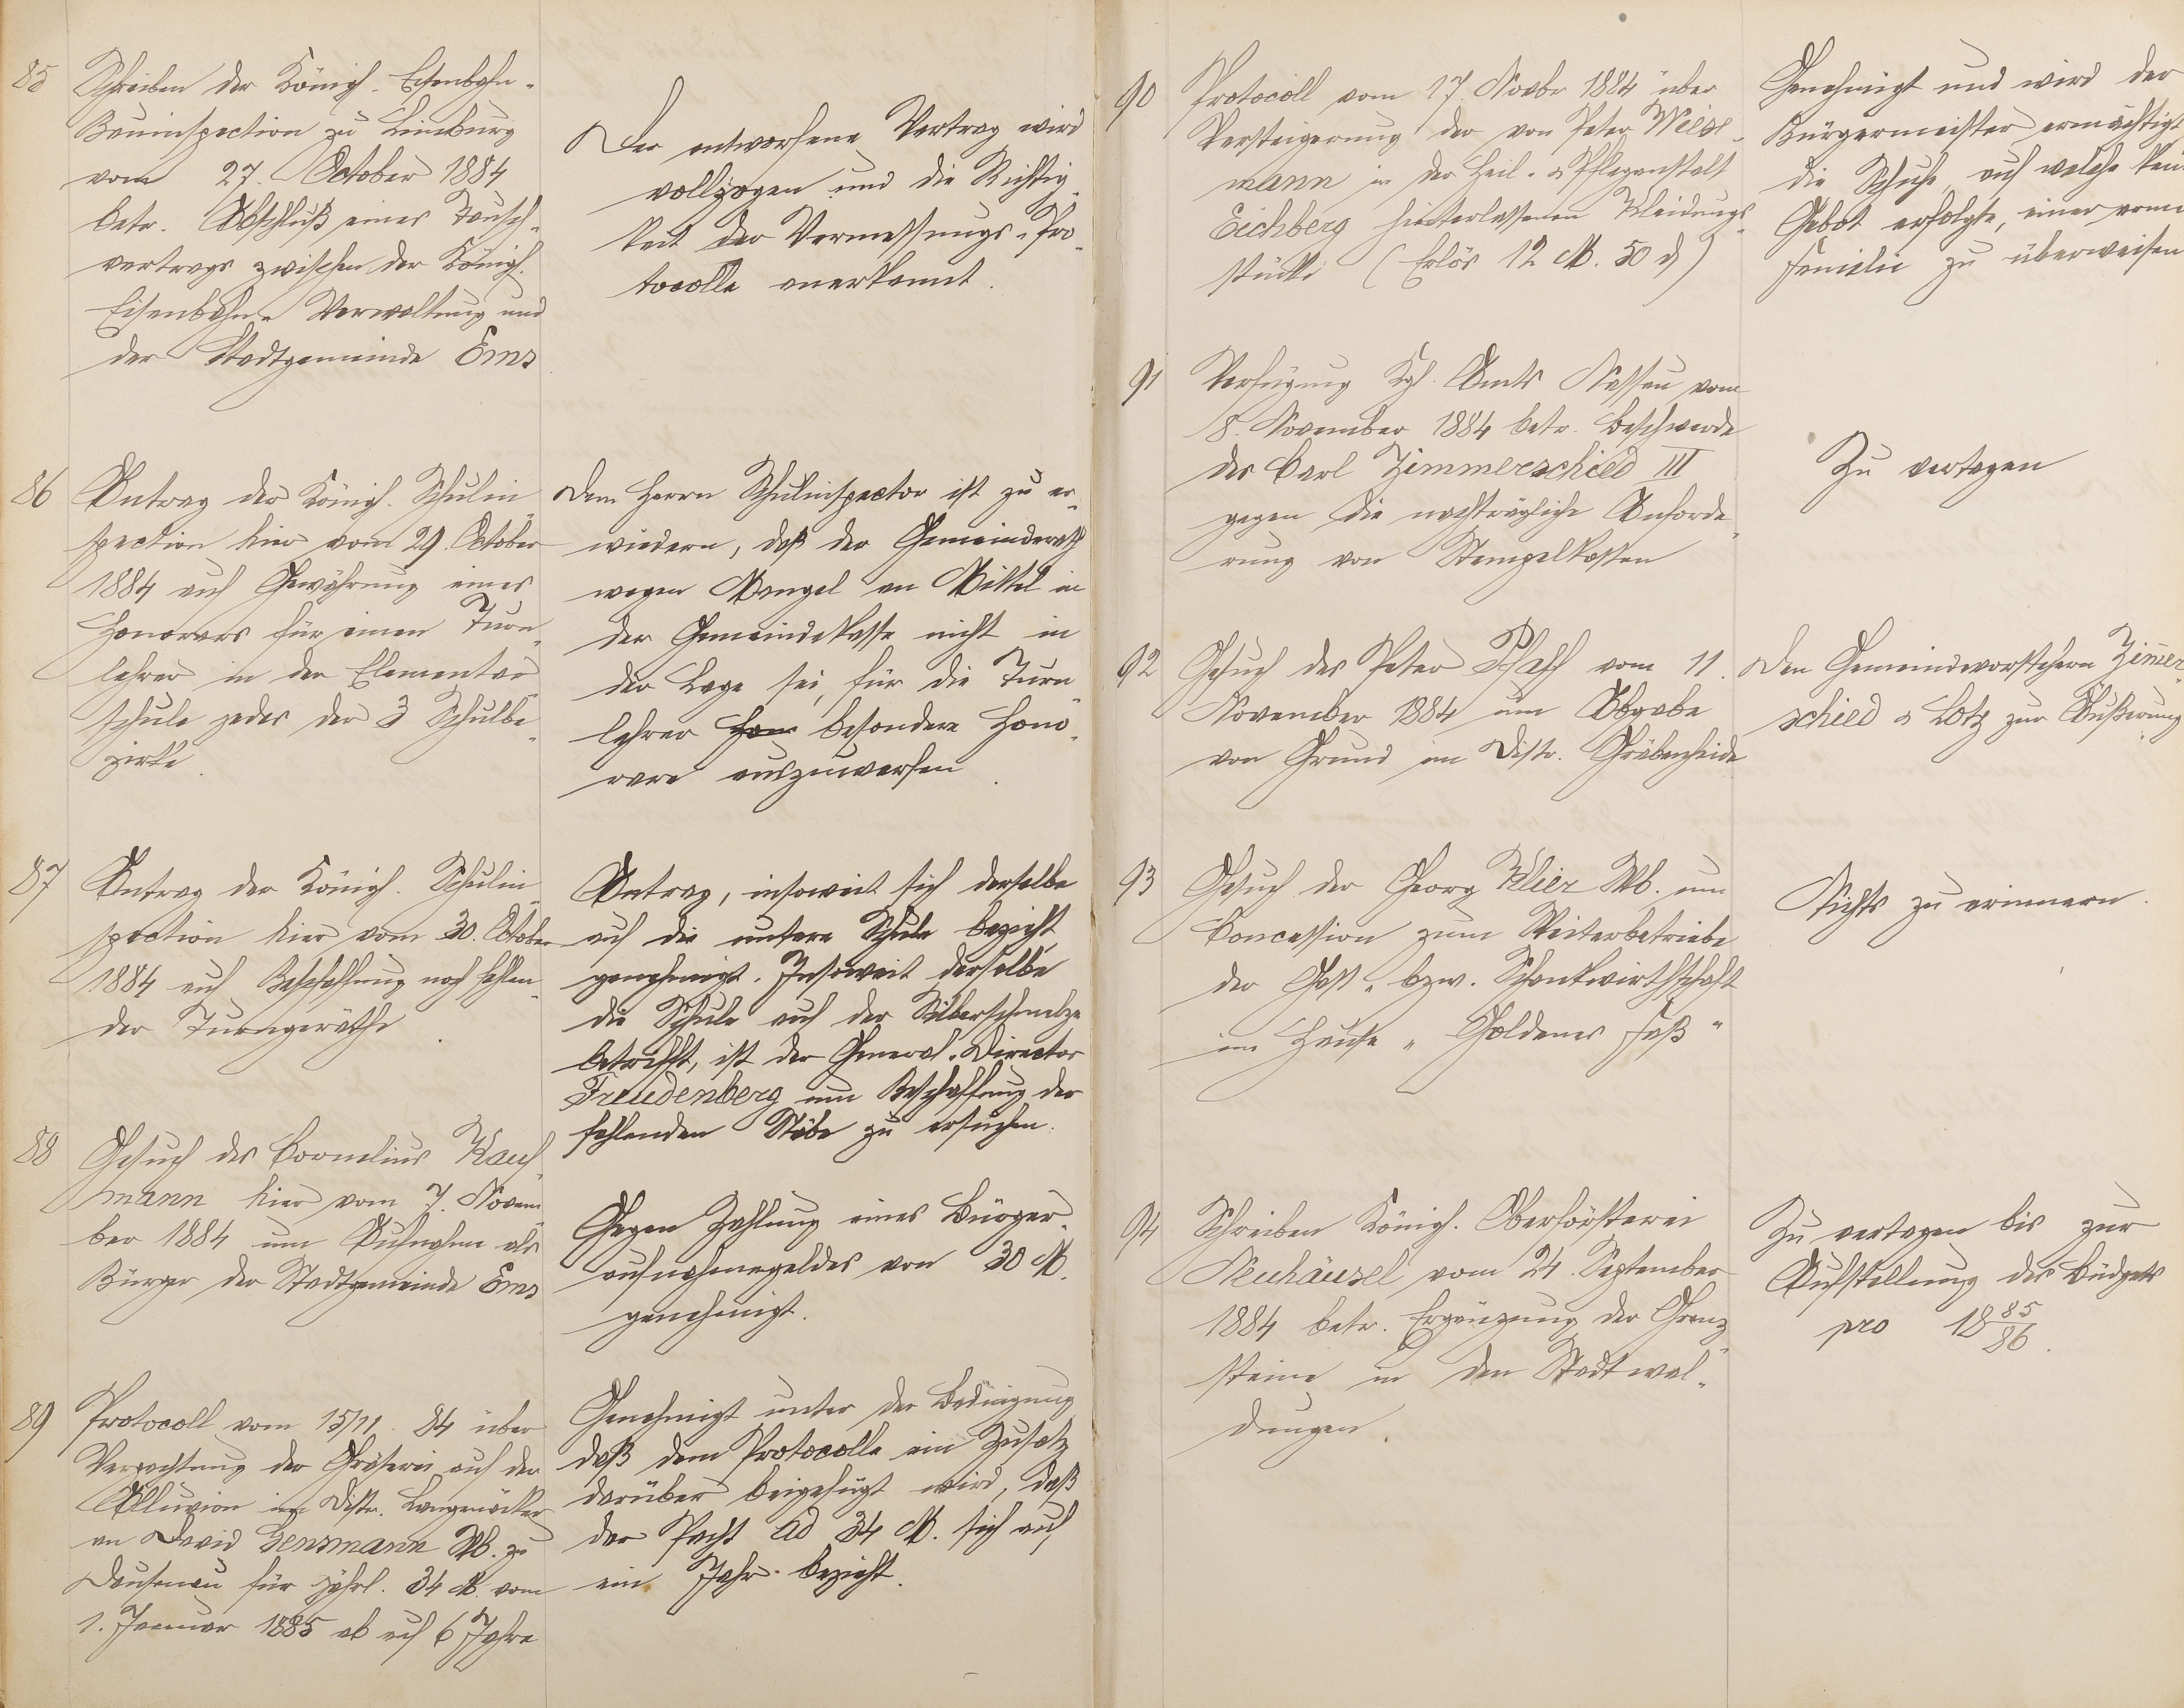 85
Schreiben der Königl. Eisenbahn-
Bauinspection zu Limburg
vom 27. October 1884
betr. Abschluß eines Tausch-
vertrags zwischen der Königl.
Eisenbahn-Verwaltung und
der Stadtgemeinde Ems
Der entworfene Vertrag wird
vollzogen und die Richtig-
keit der Vermessungs-Pro-
tocolle anerkannt.
86
Antrag der Königl. Schulin-
spection hier vom 29. October
1884 auf Gewährung eines
Honorars für einen Turn-
lehrer in der Elementar-
schule jedes der 3 Schulbe-
zirke.
Dem Herrn Schulinspector ist zu er-
wiedern, daß der Gemeinderath
wegen Mangel an Mittel in
der Gemeindekasse nicht in
der Lage sei, für die Turn-
lehrer Hon besondere Hono-
rare auszuwerfen.
87
Antrag der Königl. Schulin-
spection hier vom 30. October
1884 auf Beschaffung noch fehlen-
der Turngeräthe.
Antrag, insoweit sich derselbe
auf die untere Schule bezieht,
genehmigt. Insoweit derselbe
die Schule auf der Silberschmelze
betrifft, ist der General-Director
Freudenberg um Beschaffung der
fehlenden Stäbe zu ersuchen.
88
Gesuch des Cornelius Kauf-
mann hier vom 7. Novem-
ber 1884 um Aufnahme als
Bürger der Stadtgemeinde Ems
Gegen Zahlung eines Bürger-
aufnahmegeldes von 30 M.
genehmigt.
89
Protocoll vom 15/11. 84 über
Verpachtung der Gräserei auf der
Alluvion im Distr. Langenäcker
an David Gensmann Wb. zu
Dausenau für jährl. 34 M. vom
1. Januar 1885 ab auf 6 Jahre
Genehmigt unter der Bedingung
daß dem Protocolle ein Zusatz
darüber beigefügt wird, daß
der Pacht ad 34 M. sich auf
ein Jahr bezieht.
90
Protocoll vom 17. Novbr 1884 über
Versteigerung der von Peter Weis-
mann in der Heil- & Pflegeanstalt
Eichberg hinterlassenen Kleidungs-
stücke (Erlös 12 M. 50 d)
Genehmigt und wird der
Bürgermeister ermächtigt
die Schuhe, auf welche kein
Gebot erfolgte, einer armen
Familie zu überweisen
91
Verfügung Kgl. Amts Nassau vom
8. November 1884 betr. Beschwerde
des Carl Zimmerschied III
gegen die nachträgliche Anforde-
rung von Stempelkosten
Zu vertagen
92
Gesuch des Peter Pfaff vom 11.
November 1884 um Abgabe
von Grund im Distr. Gräbenheide
Den Gemeindevorstehern Zim̄er-
schied & Lotz zur Äußerung
93
Gesuch der Georg Klier Wb. um
Concession zum Weiterbetriebe
der Gast- bzw. Schankwirthschaft
im Hause „Goldenes Faß"
Nichts zu erinnern.
94
Schreiben Königl. Oberförsterei
Neuhäusel vom 24. September
1884 betr. Ergänzung der Grenz-
steine in den Stadtwal-
dungen.
Zu vertagen bis zur
Aufstellung des Büdgets
pro 1885/86.